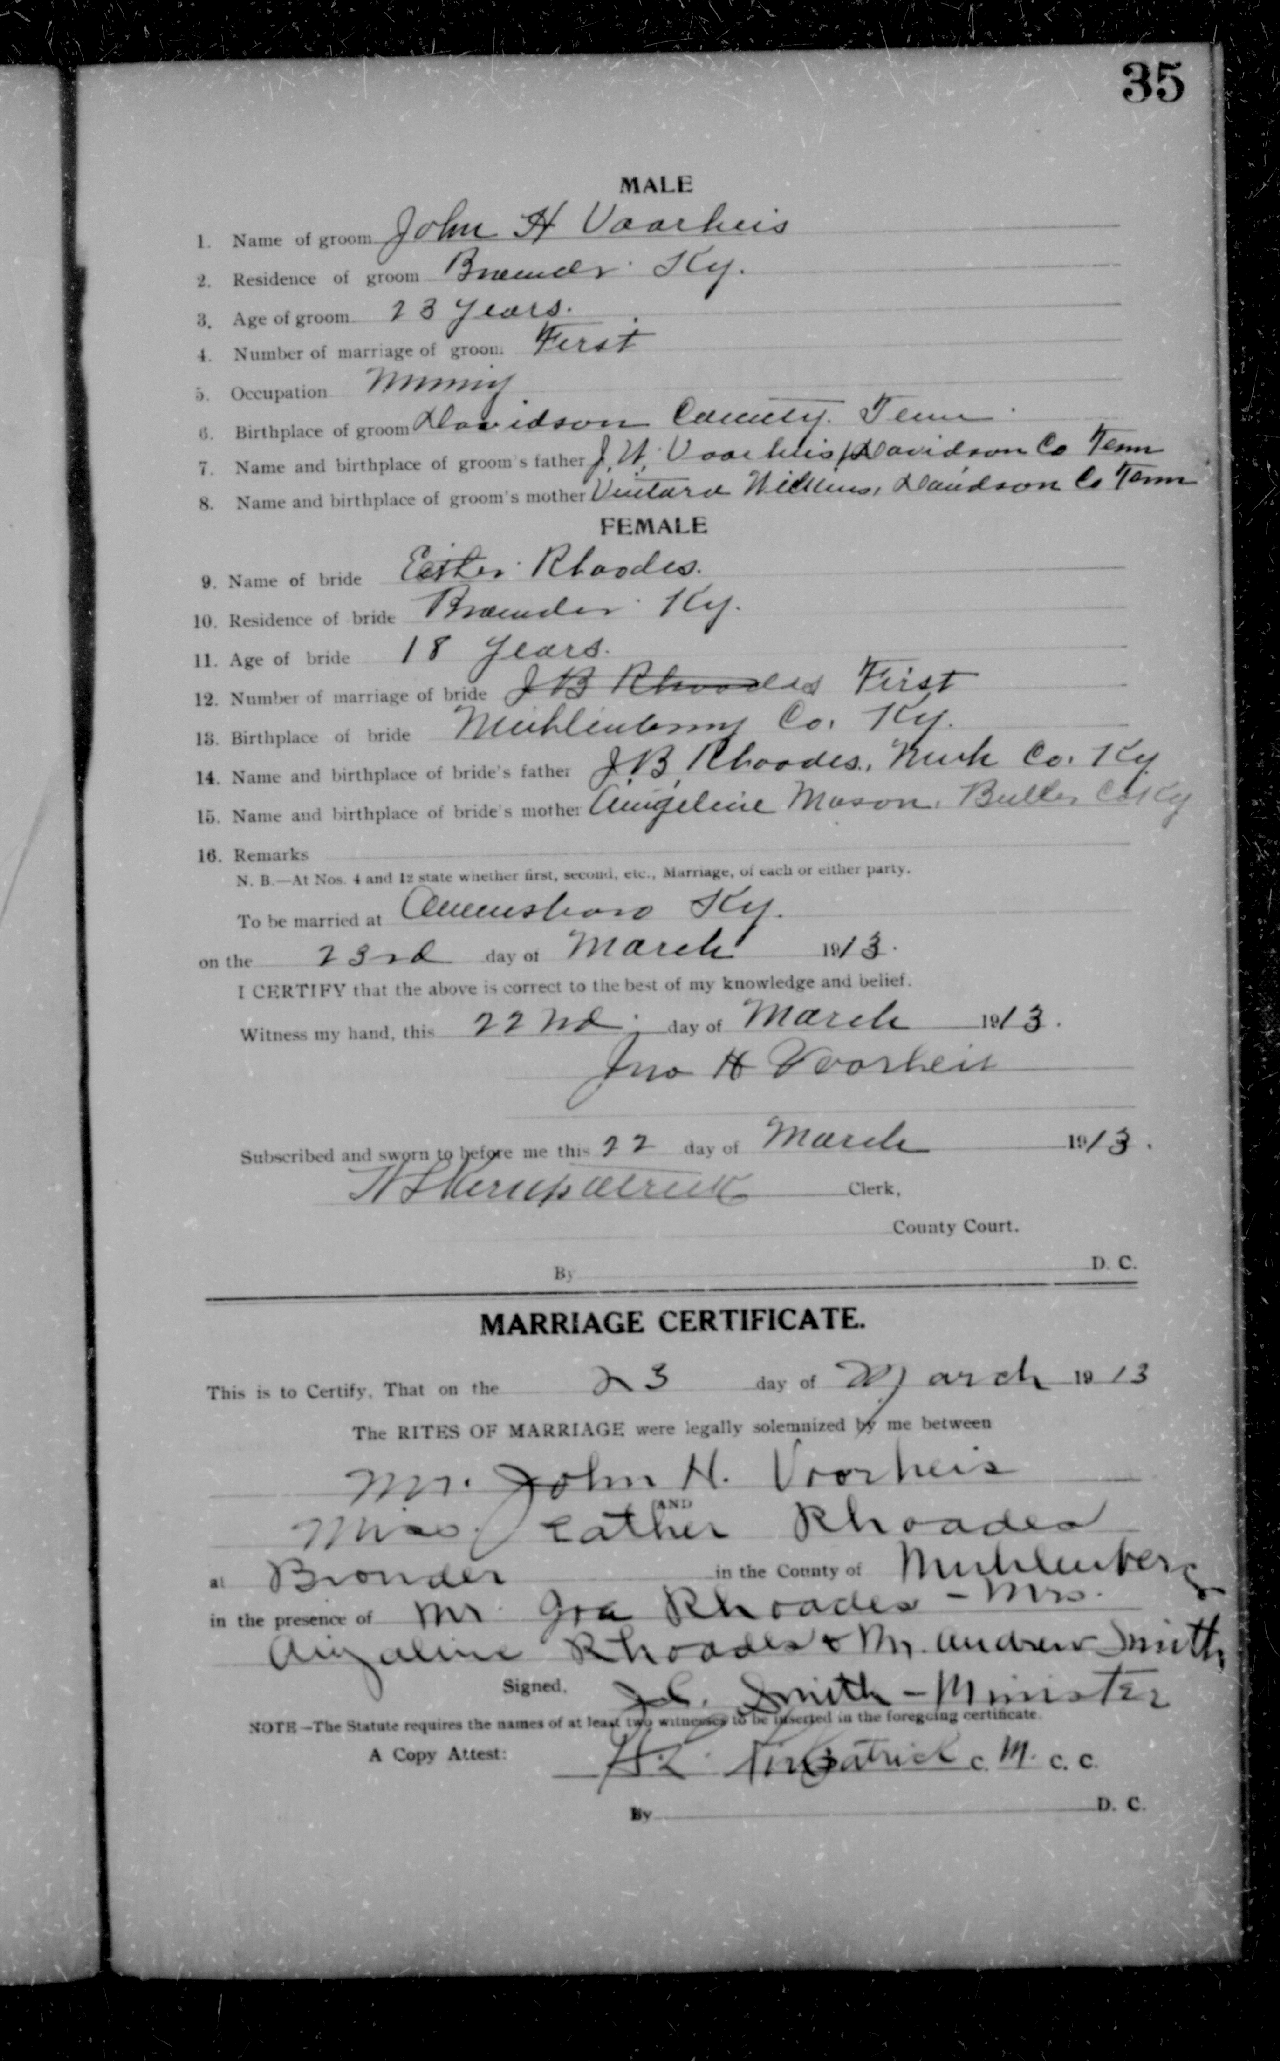 35
MALE
1. Name of groom John H Voorheis
2. Residence of groom Ky.
3. Age of groom 23 years.
4. Number of marriage of groom First
5. Occupation Mining
6. Birthplace of groom Davidson County. Tenn
7. Name and birthplace of groom's father J. W. Voorheis, Davidson Co Tenn
8. Name and birthplace of groom's mother Wilkins, Davidson Co Tenn
FEMALE
9. Name of bride Rhoades.
10. Residence of bride Ky.
11. Age of bride 18 years.
12. Number of marriage of bride J B Rhoades First
13. Birthplace of bride Muhlenberg Co. Ky.
14. Name and birthplace of bride's father J.B. Rhoades, Muh Co. Ky
15. Name and birthplace of bride's mother Angeline Mason, Butler Co Ky
16. Remarks
N. B.—At Nos. 4 and 12 state whether first, second, etc., Marriage, of each or either party.
To be married at Ky.
on the 23rd day of March 1913.
I CERTIFY that the above is correct to the best of my knowledge and belief.
Witness my hand, this 22nd day of March 1913.
Jno H Voorheis
Subscribed and sworn to before me this 22 day of March 1913.
Kirkpatrick Clerk,
County Court.
By D. C.
MARRIAGE CERTIFICATE.
This is to Certify, That on the 23 day of March 1913
The RITES OF MARRIAGE were legally solemnized by me between
Mr. John H. Voorheis
AND
Miss Eather Rhoades
at Bronder in the County of Muhlenberg
in the presence of Mr Rhoades - Mrs.
Angaline Rhoades & Mr. Andrew Smith,
Signed, J.C. Smith - Minister
NOTE—The Statute requires the names of at least two witnesses to be inserted in the foregoing certificate.
A Copy Attest: Kirkpatrick C. M. C. C.
By D. C.